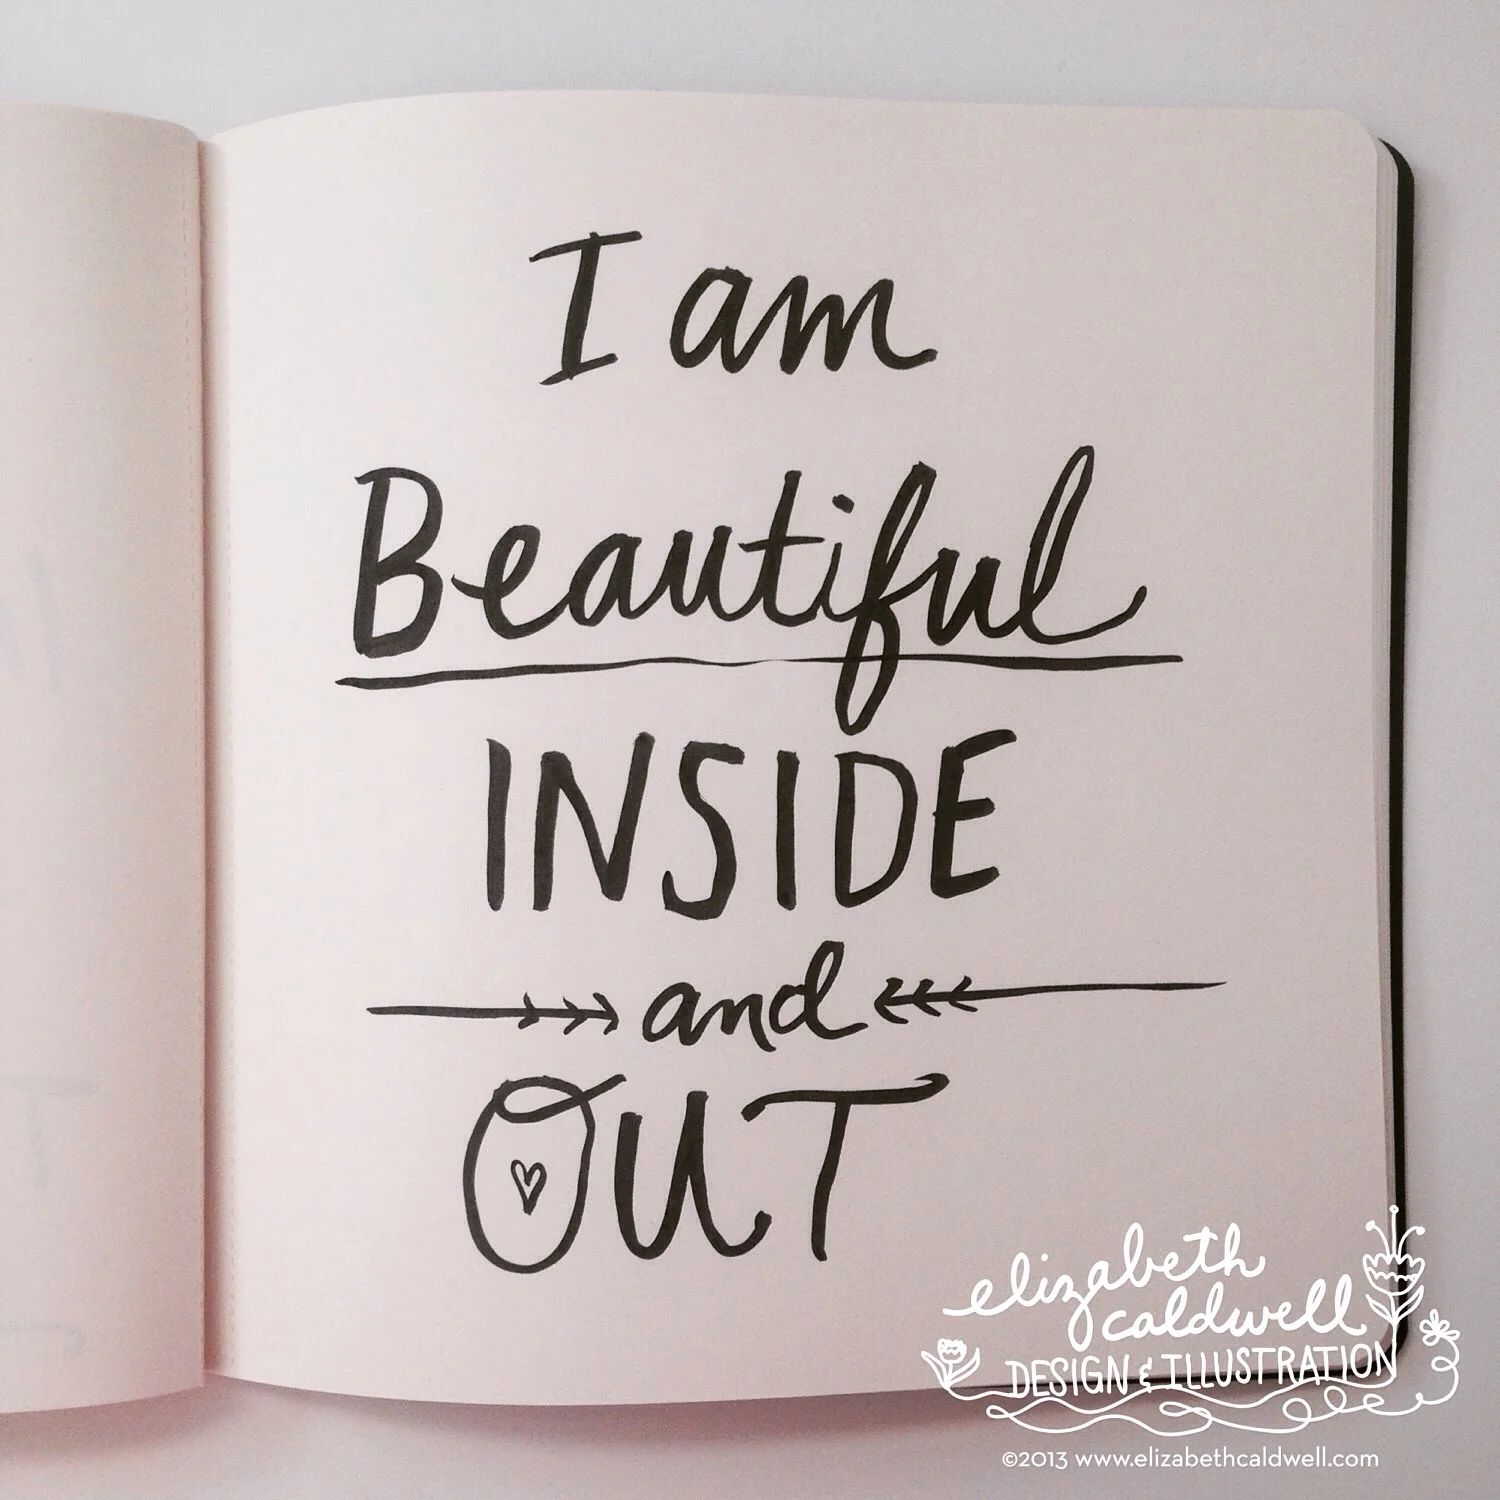 I am
Beautiful
INSIDE
and
OUT
elizabeth
caldwell
DESIGN & ILLUSTRATION
©2013 www.elizabethcaldwell.com